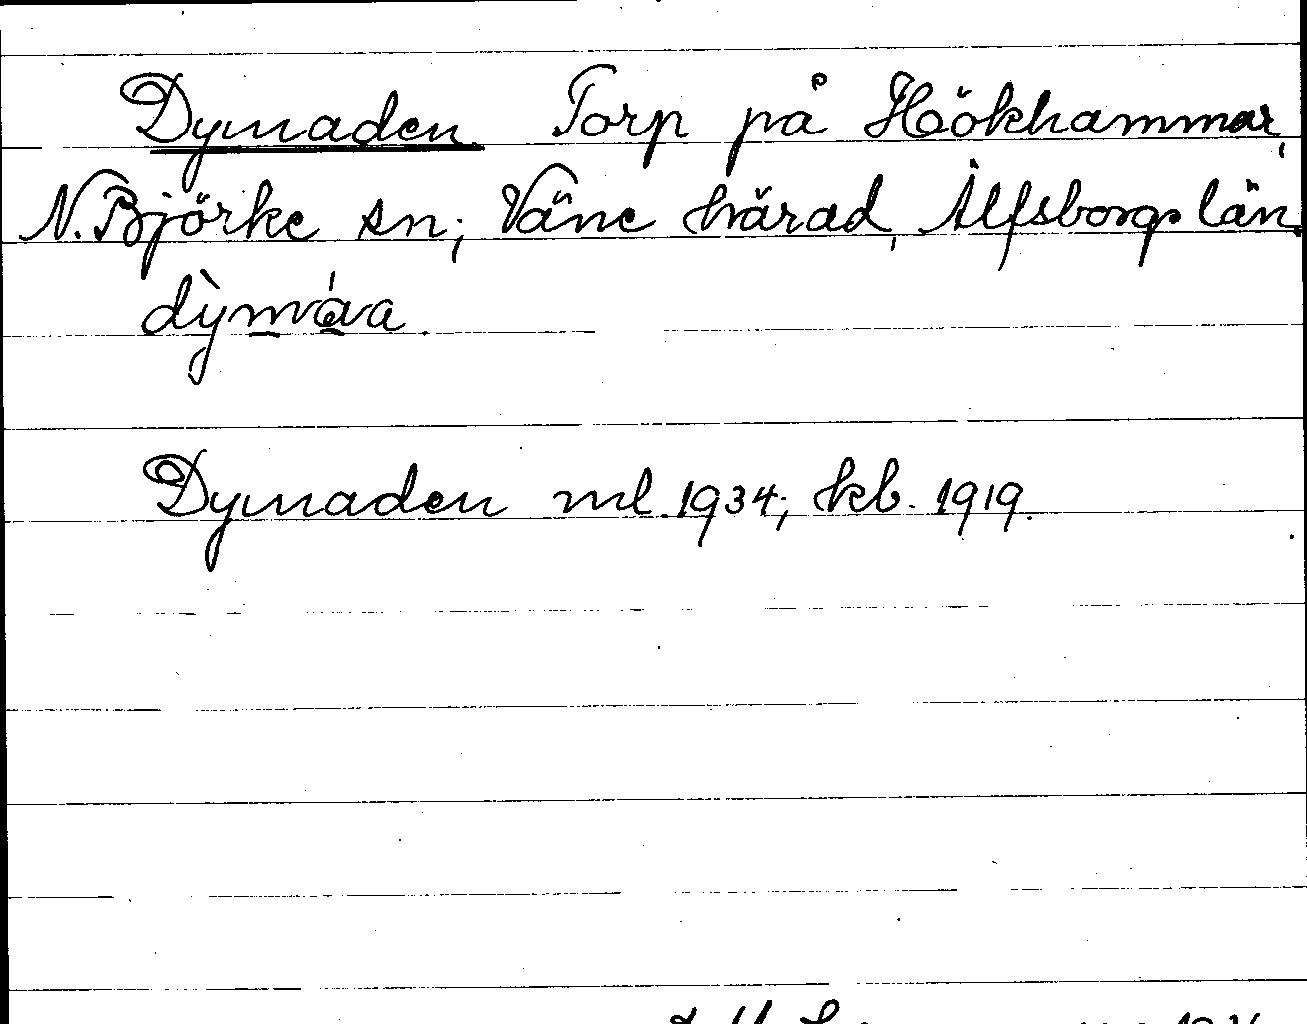 Dymaden Torp på Hökhammar,
N. Björke sn; Väne härad, Älfsborgs län.
dỳmáva.
Dymaden ml. 1934; kb. 1919.